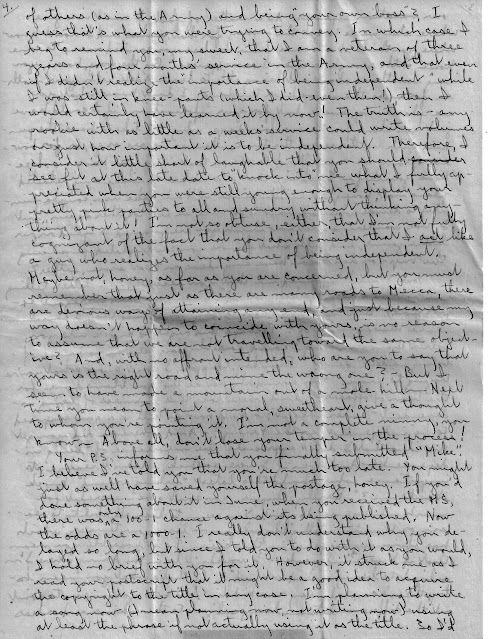 4.
of others (as in the Army) and being "your own boss"? I
guess that's what you were trying to convey. In which case I
beg to remind you, my sweet, that I am a veteran of three
years and four months' service in the Army, and that even
if I didn't realize the importance of being independent while
I was still in knee-pants (which I did - even then!), then I
would certainly have learned it by now! The truth is - any
rookie with as little as a week's service could write volumes
on just how important it is to be independent. Therefore, I
consider it little short of laughable that you should consider
see fit at this late date to "knock into" me what I fully ap-
preciated when you were still young enough to display your
pretty, pink panties to all and sundry without thinking any-
thing about it! I'm not so obtuse, either, that I'm not fully
cognizant of the fact that you don't consider that I act like
a guy who realizes the importance of being independent.
Maybe not, honey, as far as you are concerned, but you must
remember that just as there are many roads to Mecca, there
are devious ways of attaining any end, and just because my
way doesn't happen to coincide with yours, is no reason
to assume that we are not travelling toward the same object-
ive? And, with no affront intended, who are you to say that
yours is the right road and mine the wrong one? - But I
seem to have made a mountain out of a mole hill - Next
time you mean to point a moral, sweetheart, give a thought
to whom you're pointing it. I'm not a complete dummy, you
know - Above all, don't lose your temper in the process!
Your P.S. informs me that you finally submitted "Mike".
I believe I've told you that you're much too late. You might
just as well have saved yourself the postage, honey. If you'd
done something about it in June, when you received the MS,
there was only a 100-1 chance against its being published. Now
the odds are 1000-1. I really don't understand why you de-
layed so long, but since I told you to do with it as you would,
I hold no brief with you for it. However, it struck me as I
read your postscript that it might be a good idea to acquire
the copyright to the title in any case. I'm planning to write
a song now (I mean planning now, not writing now) using
at least the phrase if not actually using it as the title. So I'd